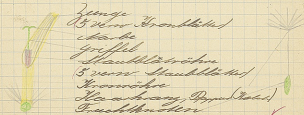 Zunge
5 verw. Kronblätter
Narbe
Griffel
Staubblattröhre
5 verw. Staubblätter
Kronröhre
Haarkranz, Pappus (Kelch)
Fruchtknoten